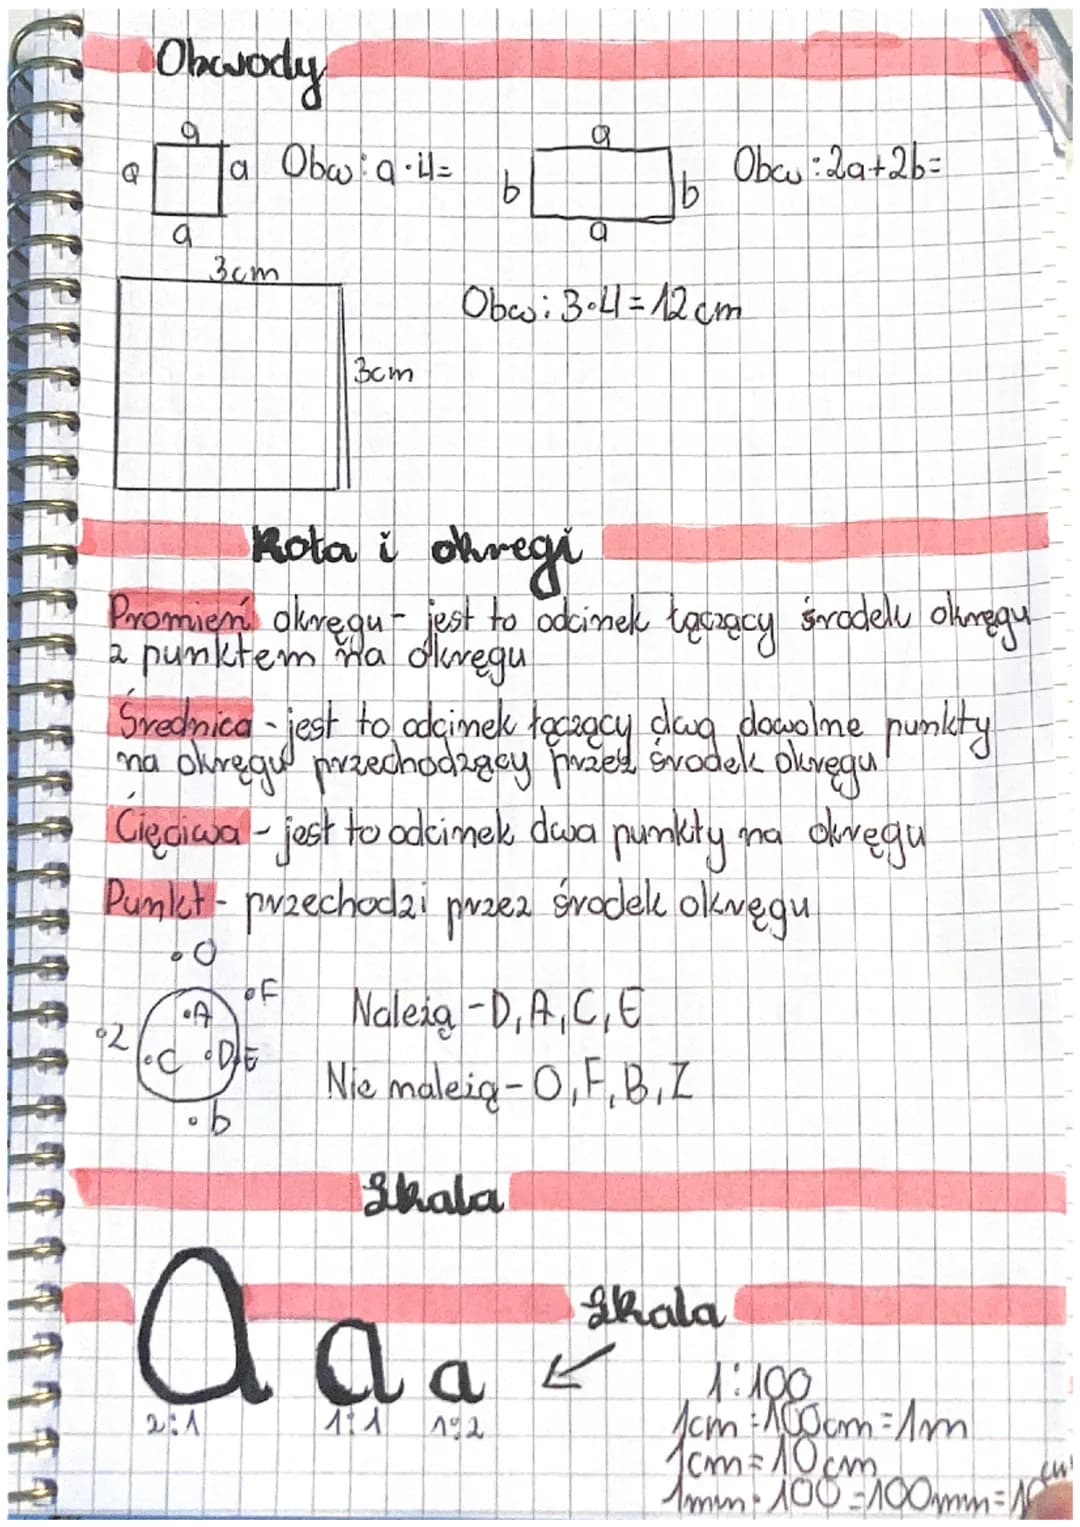 Obwody
a
a
a
a
Obw: a·4=
a
b
b
a
Obw: 2a+2b=
3cm
3cm
Obw: 3·4=12cm
Koła i okregi
Promień okręgu- jest to odcinek łączący środek okręgu
z punktem na okręgu
Średnica - jest to odcinek łączący dwa dowolne punkty
na okręgu przechodzący przez środek okręgu
Cięciwa - jest to odcinek dwa punkty na okręgu
Punkt - przechodzi przez środek okręgu
O
F
A
Z
C
D
E
b
Należą - D, A, C, E
Nie należą - O, F, B, Z
Skala
Skala
a a a
2:1 1:1 1:2
1:100
1cm = 100cm = 1m
1cm = 10cm
1mm · 100 = 100mm = 10cm